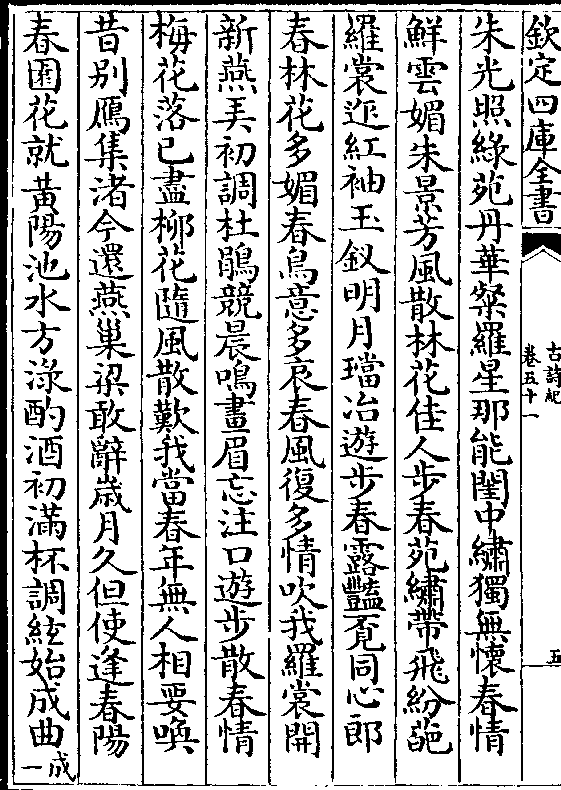 欽定四庫全書
古詩紀
卷五十一
五
朱光照緑苑丹華粲羅星那能閨中繡獨無懷春情
鮮雲媚朱景芳風散林花佳人步春苑繡帶飛紛葩
羅裳迮紅袖玉釵明月璫冶遊步春露豔覔同心郎
春林花多媚春鳥意多哀春風復多情吹我羅裳開
新燕弄初調杜鵑競晨鳴畫眉忘注口遊步散春情
梅花落已盡柳花隨風散歎我當春年無人相要喚
昔别鴈集渚今還燕巢梁敢辭歳月久但使逢春陽
春園花就黄陽池水方渌酌酒初滿杯調絃始成曲成一